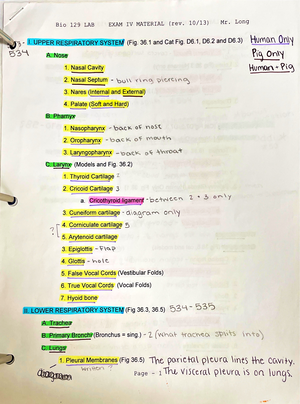 Bio 129 LAB EXAM IV MATERIAL (rev. 10/13) Mr. Long
Human Only
Pig Only
Human + Pig
I. UPPER RESPIRATORY SYSTEM (Fig 36.1 and Cat Fig. D6.1, D6.2 and D6.3)
534
A. Nose
1. Nasal Cavity
2. Nasal Septum - bull ring piercing
3. Nares (Internal and External)
4. Palate (Soft and Hard)
B. Pharnyx
1. Nasopharnyx - back of nose
2. Oropharnyx - back of mouth
3. Laryngopharnyx - back of throat
C. Larynx (Models and Fig. 36.2)
1. Thyroid Cartilage 2
2. Cricoid Cartilage 3
a. Cricothyroid ligament - between 2 + 3 only
3. Cuneiform cartilage - diagram only
? 4. Corniculate cartilage 5
5. Arytenoid cartilage
3. Epiglottis - Flap
4. Glottis - hole
5. False Vocal Cords (Vestibular Folds)
6. True Vocal Cords (Vocal Folds)
7. Hyoid bone
II. LOWER RESPIRATORY SYSTEM (Fig 36.3, 36.5) 534-535
A. Trachea
B. Primary Bronchi (Bronchus = sing.) - 2 (what trachea splits into)
C. Lungs
1. Pleural Membranes (Fig 36.5) The parietal pleura lines the cavity.
written
Page - 1 The visceral pleura is on lungs.